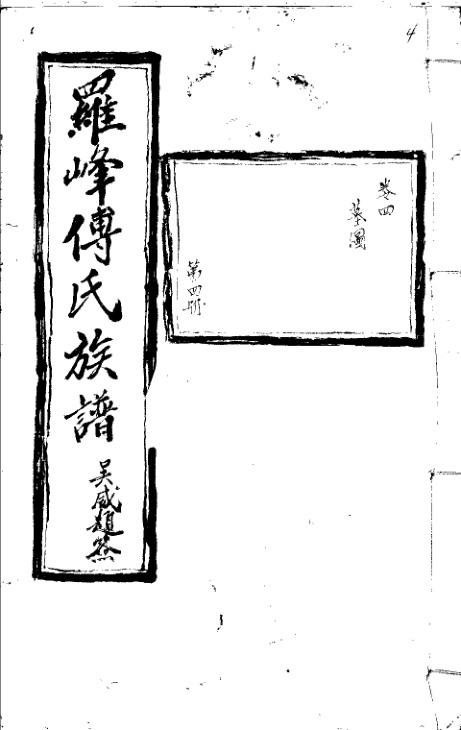 4
卷四
墓圖
第四冊
羅峰傅氏族譜
吳威題簽